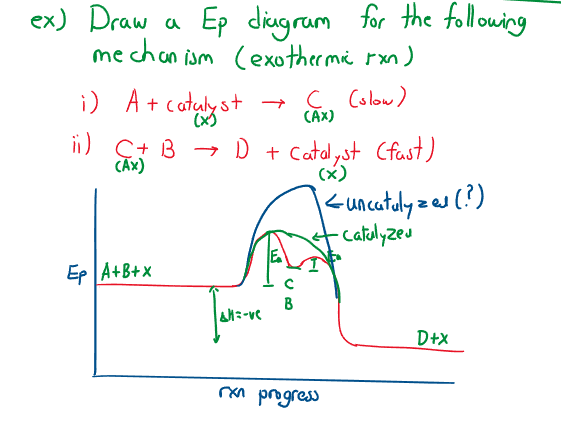 ex) Draw a Ep diagram for the following
mechanism (exothermic rxn)
i) A + catalyst → C (slow)
(x) (Ax)
ii) C + B → D + catalyst (fast)
(Ax) (x)
← uncatalyzed (?)
← catalyzed
Ep
A+B+x
Ea
Ea
C
B
ΔH=-ve
D+x
rxn progress